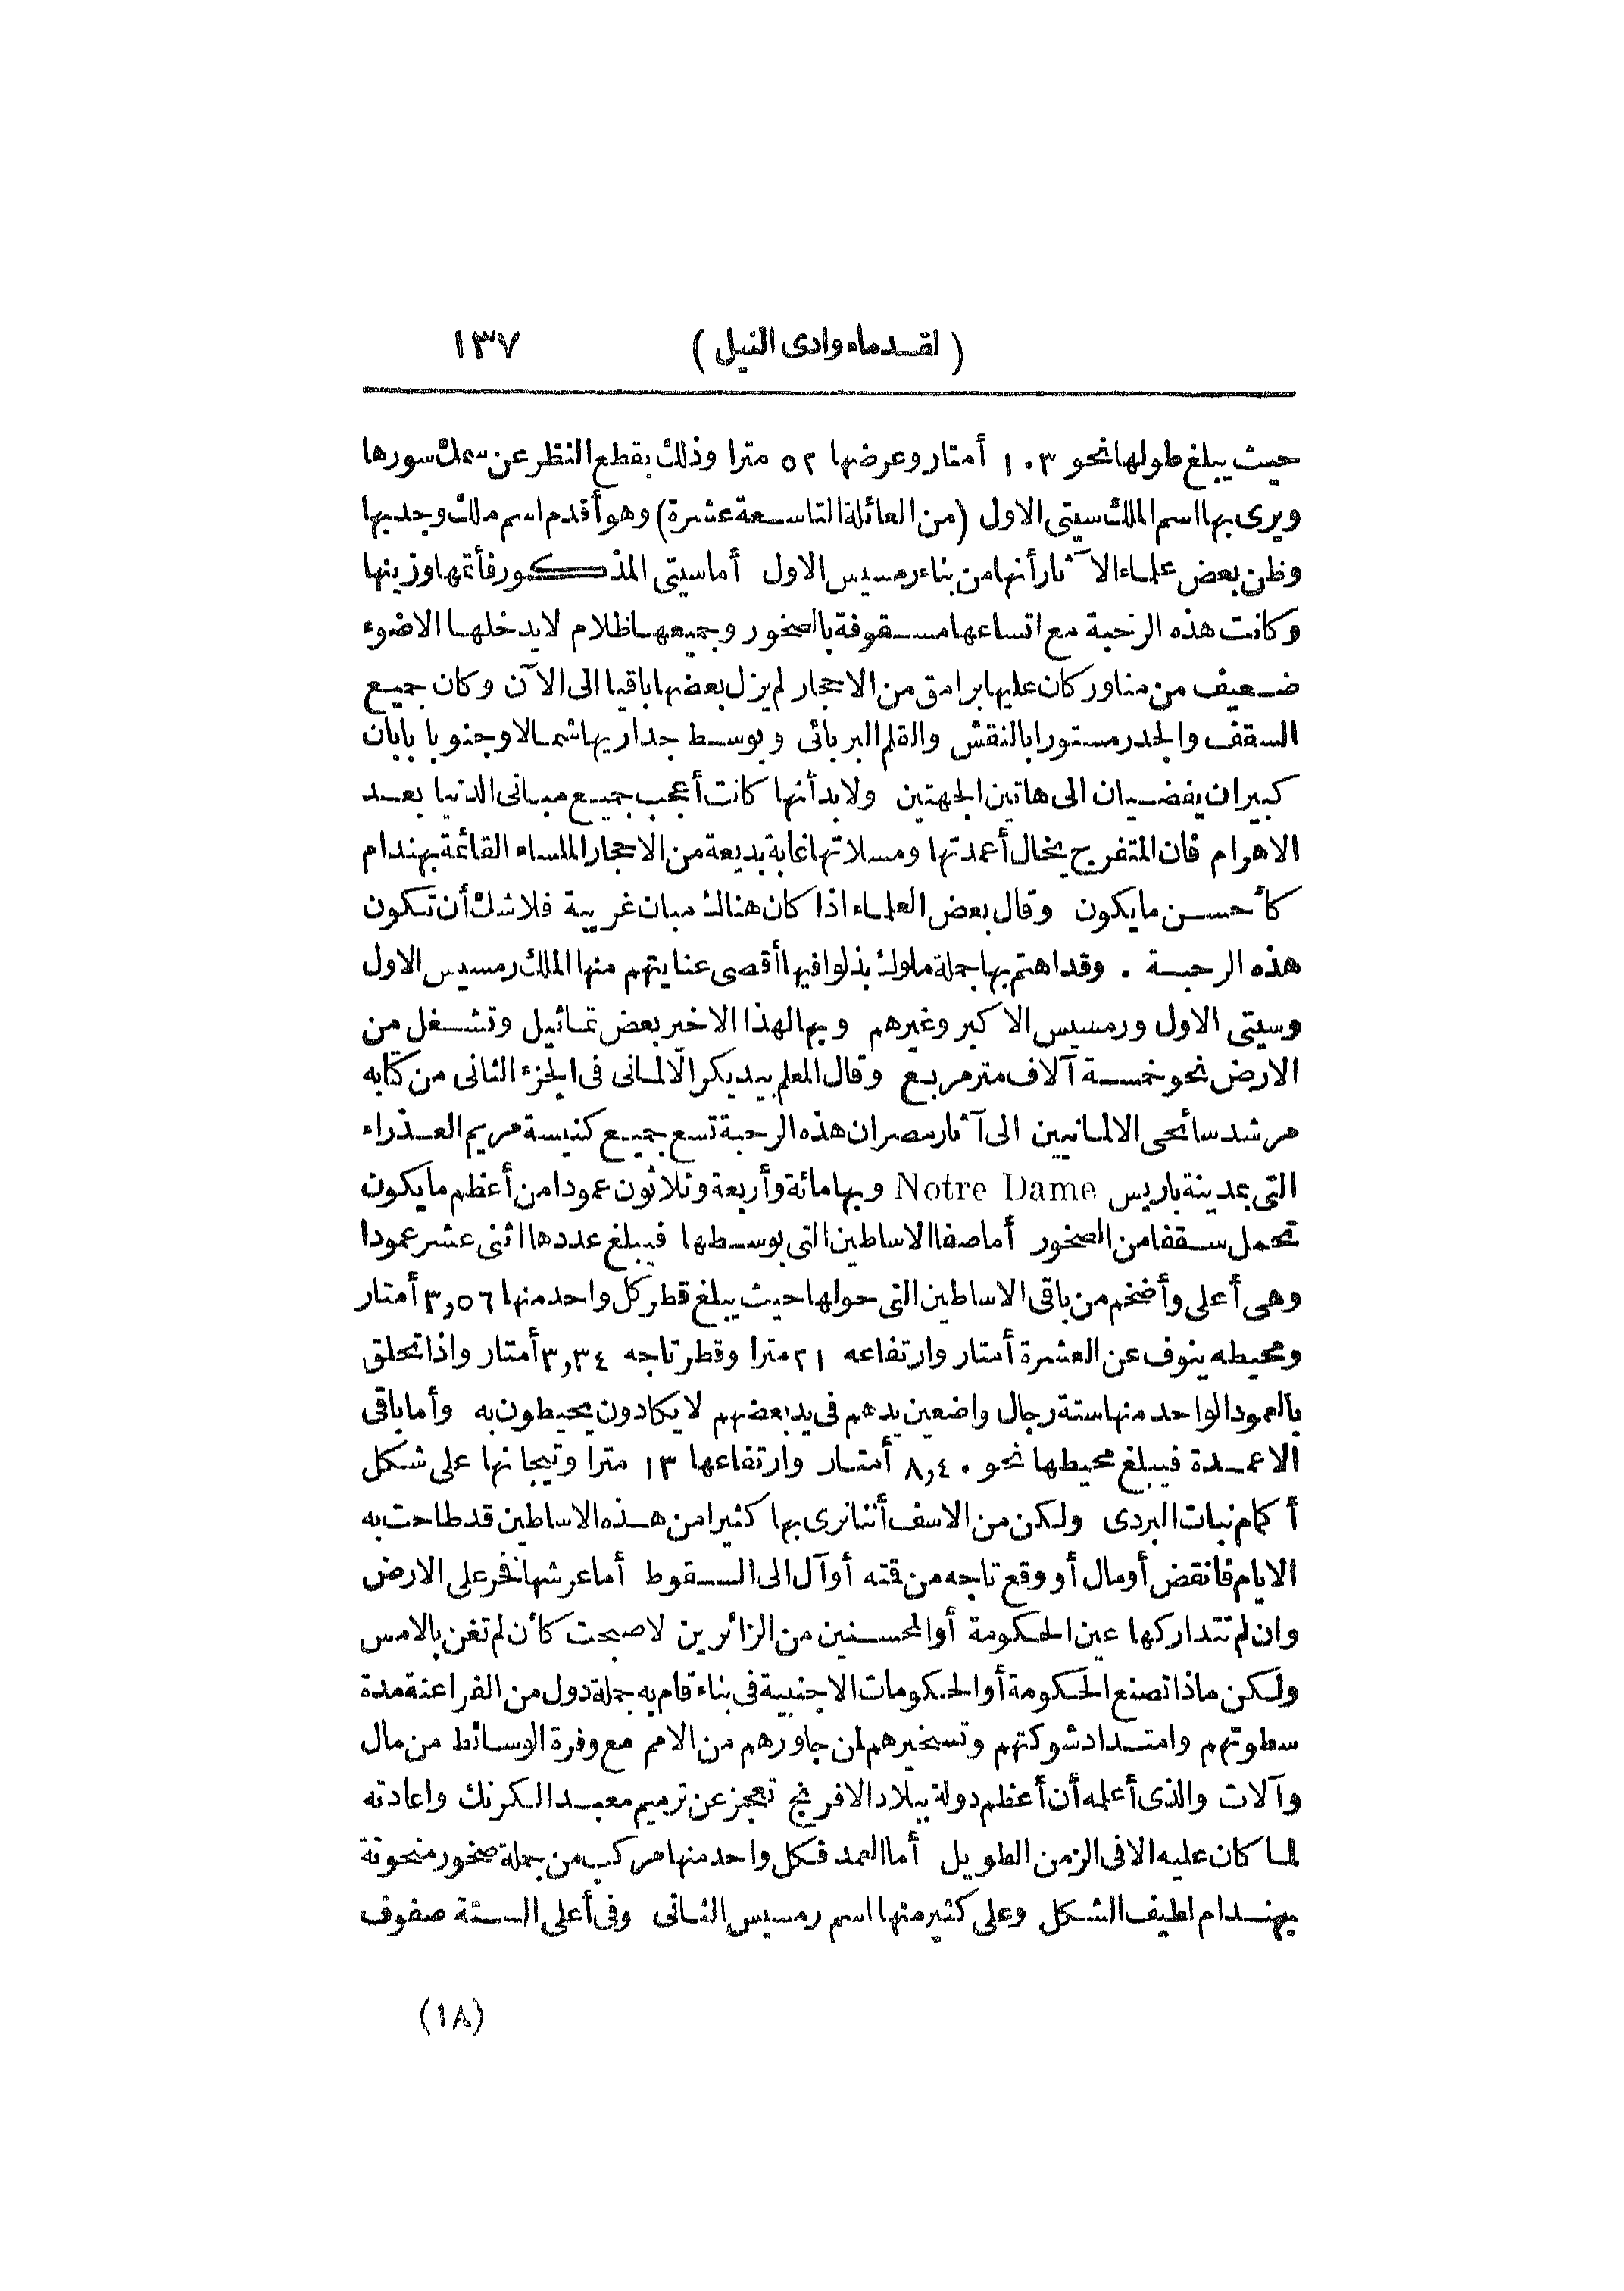 (لقدماء وادى النيل) ١٣٧
حيث يبلغ طولها نحو ١٠٣ أمتار وعرضها ٥٢ مترا وذلك بقطع النظر عن سمك سورها
ويرى بها اسم الملك سيتى الاول (من العائلة التاسعة عشرة) وهو أقدم اسم ملك وجد بها
وظن بعض علماء الآثار أنها من بناء رمسيس الاول أما سيتى المذكور فأتمها وزينها
وكانت هذه الرحبة مع اتساعها مسقوفة بالصخور وجميعها ظلام لا يدخلها الا ضوء
ضعيف من مناور كان عليها برامق من الاحجار لم يزل بعضها باقيا الى الآن وكان جميع
السقف والجدر مستورا بالنقش والقلم البربائى وبوسط جداريها شمالا وجنوبا بابان
كبيران يفضيان الى هاتين الجهتين ولابد أنها كانت أعجب جميع مبانى الدنيا بعد
الاهرام فان المتفرج يخال أعمدتها ومسلاتها غابة بديعة من الاحجار الملساء القائمة بهندام
كأحسن ما يكون وقال بعض العلماء اذا كان هناك مبان غريبة فلا شك أن تكون
هذه الرحبة . وقد اهتم بها جملة ملوك بذلوا فيها أقصى عنايتهم منها الملك رمسيس الاول
وسيتى الاول ورمسيس الاكبر وغيرهم وبها لهذا الاخير بعض تماثيل وتشغل من
الارض نحو خمسة آلاف متر مربع وقال المعلم بيديكر الالمانى فى الجزء الثانى من كتابه
مرشد سائحى الالمانيين الى آثار مصر ان هذه الرحبة تسع جميع كنيسة مريم العذراء
التى بمدينة باريس Notre Dame وبها مائة وأربعة وثلاثون عمودا من أعظم ما يكون
تحمل سقفا من الصخور أما صفا الاساطين التى بوسطها فيبلغ عددها اثنى عشر عمودا
وهى أعلى وأضخم من باقى الاساطين التى حولها حيث يبلغ قطر كل واحد منها ٣,٥٦ أمتار
ومحيطه ينوف عن العشرة أمتار وارتفاعه ٢١ مترا وقطر تاجه ٣,٣٤ أمتار واذا تحلق
بالعمود الواحد منها ستة رجال واضعين يدهم فى يد بعضهم لا يكادون يحيطون به وأما باقى
الاعمدة فيبلغ محيطها نحو ٨,٤٠ أمتار وارتفاعها ١٣ مترا وتيجانها على شكل
أكمام نبات البردى ولكن من الاسف أننا نرى بها كثيرا من هذه الاساطين قد طاحت به
الايام فانقض أو مال أو وقع تاجه من قمته أو آل الى السقوط أما عرشها فخر على الارض
وان لم تتداركها عين الحكومة أو المحسنين من الزائرين لاصبحت كأن لم تغن بالامس
ولكن ماذا تصنع الحكومة أو الحكومات الاجنبية فى بناء قام به جملة دول من الفراعنة مدة
سطوتهم وامتداد شوكتهم وتسخيرهم لمن جاورهم من الامم مع وفرة الوسائط من مال
وآلات والذى أعلمه أن أعظم دولة ببلاد الافرنج تعجز عن ترميم معبد الكرنك واعادته
لما كان عليه الا فى الزمن الطويل أما العمد فكل واحد منها مركب من جملة صخور منحوتة
بهندام لطيف الشكل وعلى كثير منها اسم رمسيس الثانى وفى أعلى الستة صفوف
(١٨)